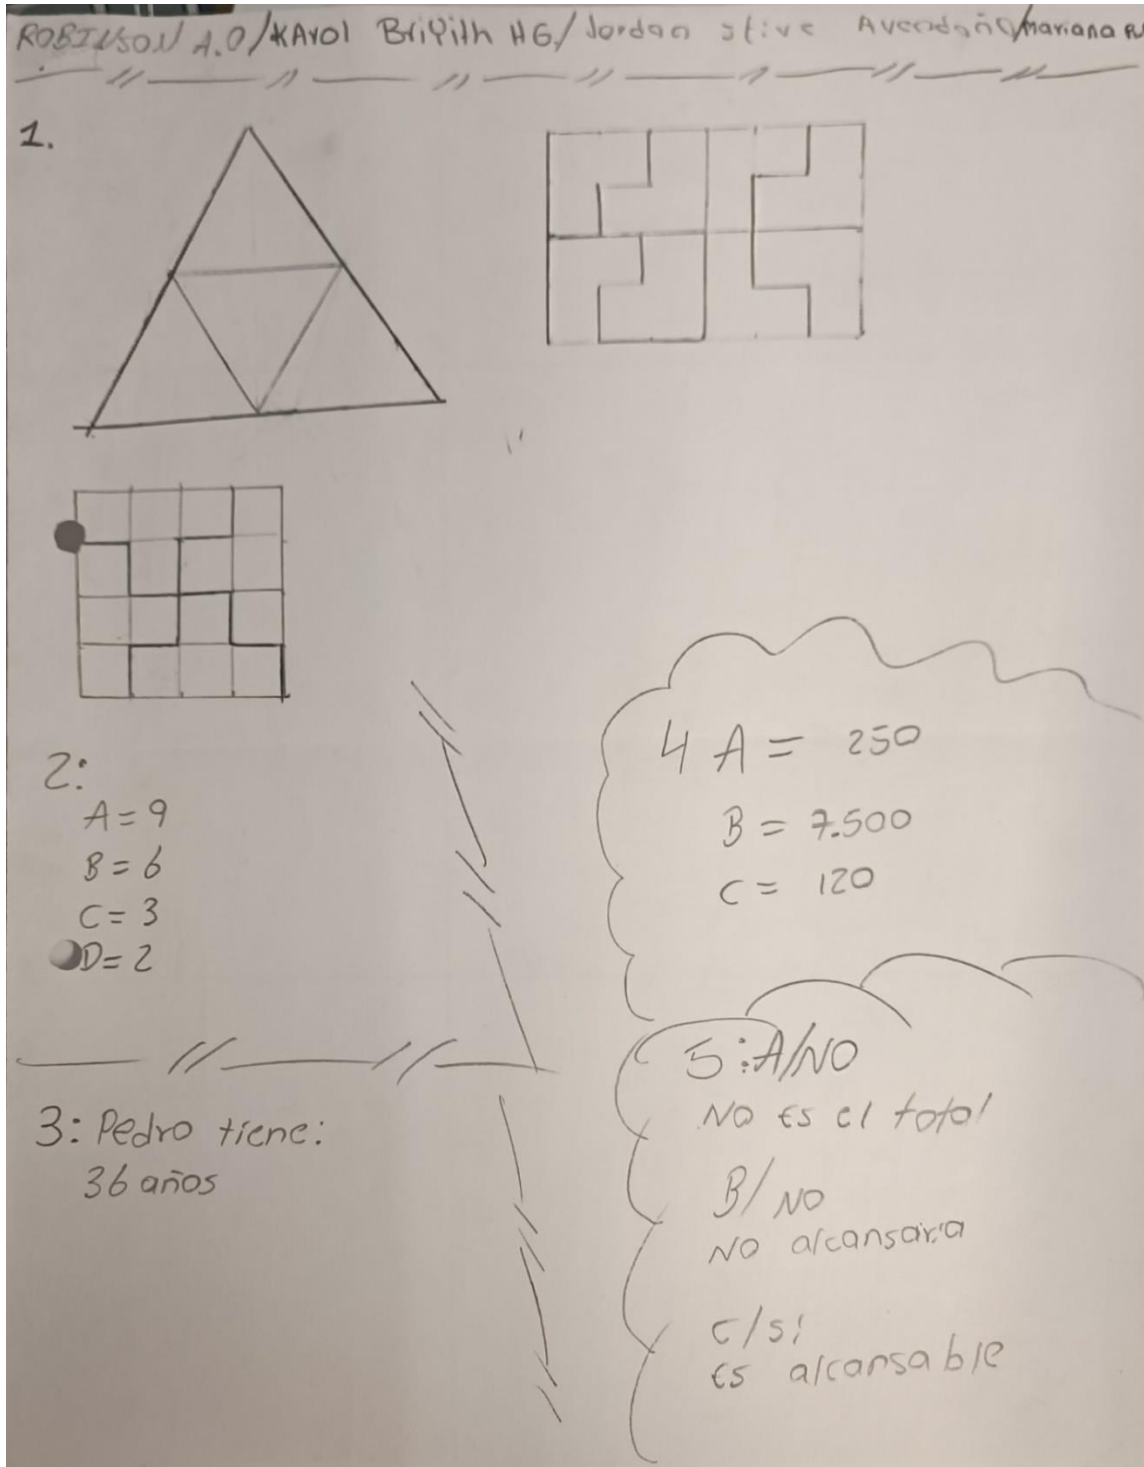 ROBINSON A.O/KArol Briyith HG/Jordan stive Avendaño/mariana
1.
2:
A=9
B=6
C=3
D=2
3: Pedro tiene:
36 años
4 A= 250
B= 7.500
C= 120
5:A/NO
NO Es el total
B/NO
NO alcansaria
C/si
Es alcansable